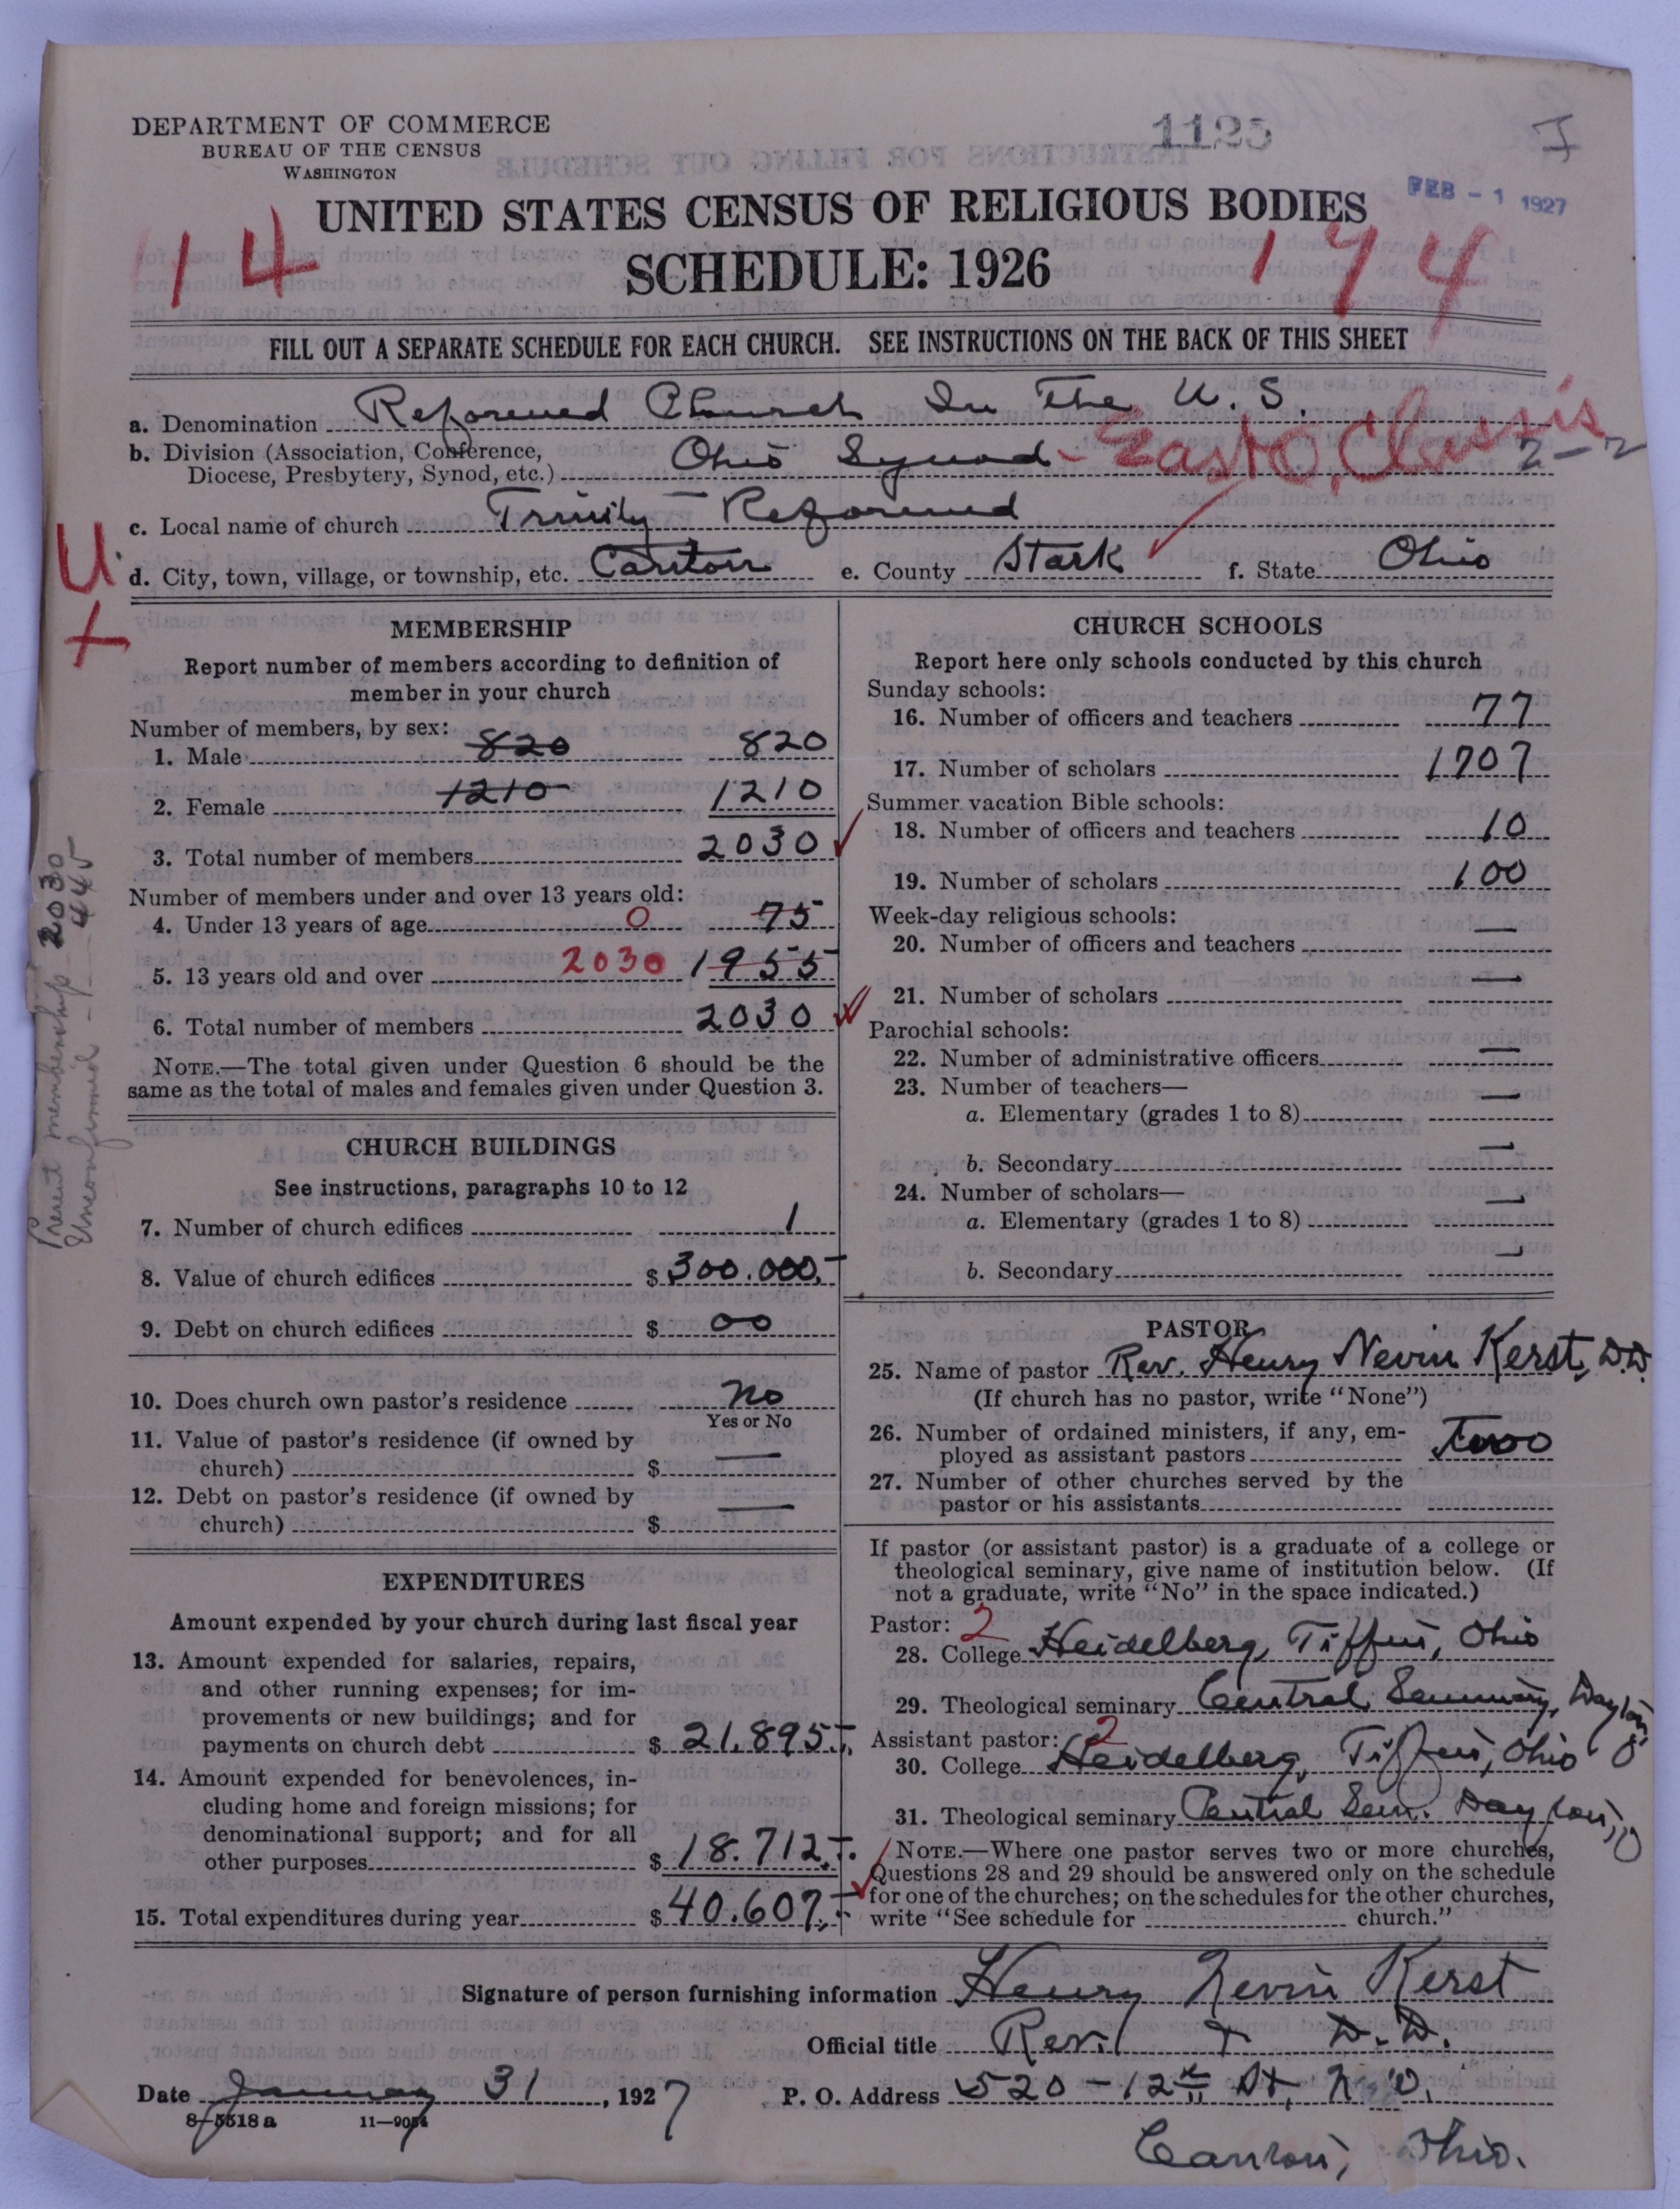 DEPARTMENT OF COMMERCE
BUREAU OF THE CENSUS
WASHINGTON
1125
I
FEB - 1 1927
UNITED STATES CENSUS OF RELIGIOUS BODIES
SCHEDULE: 1926
14
194
FILL OUT A SEPARATE SCHEDULE FOR EACH CHURCH. SEE INSTRUCTIONS ON THE BACK OF THIS SHEET
a. Denomination Reformed Church In The U. S.
b. Division (Association, Conference, Diocese, Presbytery, Synod, etc.) Ohio Synod - East O. Classis 2-2
c. Local name of church Trinity Reformed
U
d. City, town, village, or township, etc. Canton e. County Stark f. State Ohio
+
MEMBERSHIP
Report number of members according to definition of
member in your church
Number of members, by sex:
1. Male 820 820
2. Female 1210 1210
3. Total number of members 2030
Number of members under and over 13 years old:
4. Under 13 years of age 0 75
5. 13 years old and over 2030 1955
6. Total number of members 2030
NOTE.—The total given under Question 6 should be the
same as the total of males and females given under Question 3.
Present membership 2030
Unconfirmed - 445
CHURCH BUILDINGS
See instructions, paragraphs 10 to 12
7. Number of church edifices 1
8. Value of church edifices $ 300.000,-
9. Debt on church edifices $ 00
10. Does church own pastor's residence No
Yes or No
11. Value of pastor's residence (if owned by
church) $ —
12. Debt on pastor's residence (if owned by
church) $ —
EXPENDITURES
Amount expended by your church during last fiscal year
13. Amount expended for salaries, repairs,
and other running expenses; for im-
provements or new buildings; and for
payments on church debt $ 21.895,-
14. Amount expended for benevolences, in-
cluding home and foreign missions; for
denominational support; and for all
other purposes $ 18.712,-
15. Total expenditures during year $ 40.607,-
CHURCH SCHOOLS
Report here only schools conducted by this church
Sunday schools:
16. Number of officers and teachers 77
17. Number of scholars 1707
Summer vacation Bible schools:
18. Number of officers and teachers 10
19. Number of scholars 100
Week-day religious schools:
20. Number of officers and teachers —
21. Number of scholars —
Parochial schools:
22. Number of administrative officers —
23. Number of teachers—
a. Elementary (grades 1 to 8) —
b. Secondary —
24. Number of scholars—
a. Elementary (grades 1 to 8) —
b. Secondary —
PASTOR
25. Name of pastor Rev. Henry Nevin Kerst, D.D.
(If church has no pastor, write "None")
26. Number of ordained ministers, if any, em-
ployed as assistant pastors Two
27. Number of other churches served by the
pastor or his assistants
If pastor (or assistant pastor) is a graduate of a college or
theological seminary, give name of institution below. (If
not a graduate, write "No" in the space indicated.)
Pastor: 2
28. College Heidelberg, Tiffin, Ohio
29. Theological seminary Central Seminary, Dayton, O
Assistant pastor: 2
30. College Heidelberg, Tiffin, Ohio
31. Theological seminary Central Sem. Dayton, O
NOTE.—Where one pastor serves two or more churches,
Questions 28 and 29 should be answered only on the schedule
for one of the churches; on the schedules for the other churches,
write "See schedule for church."
Signature of person furnishing information Henry Nevin Kerst
Official title Rev. + D.D.
Date January 31, 1927 P. O. Address 520 - 12th St, N.W.
8-5518a 11-9054
Canton, Ohio.